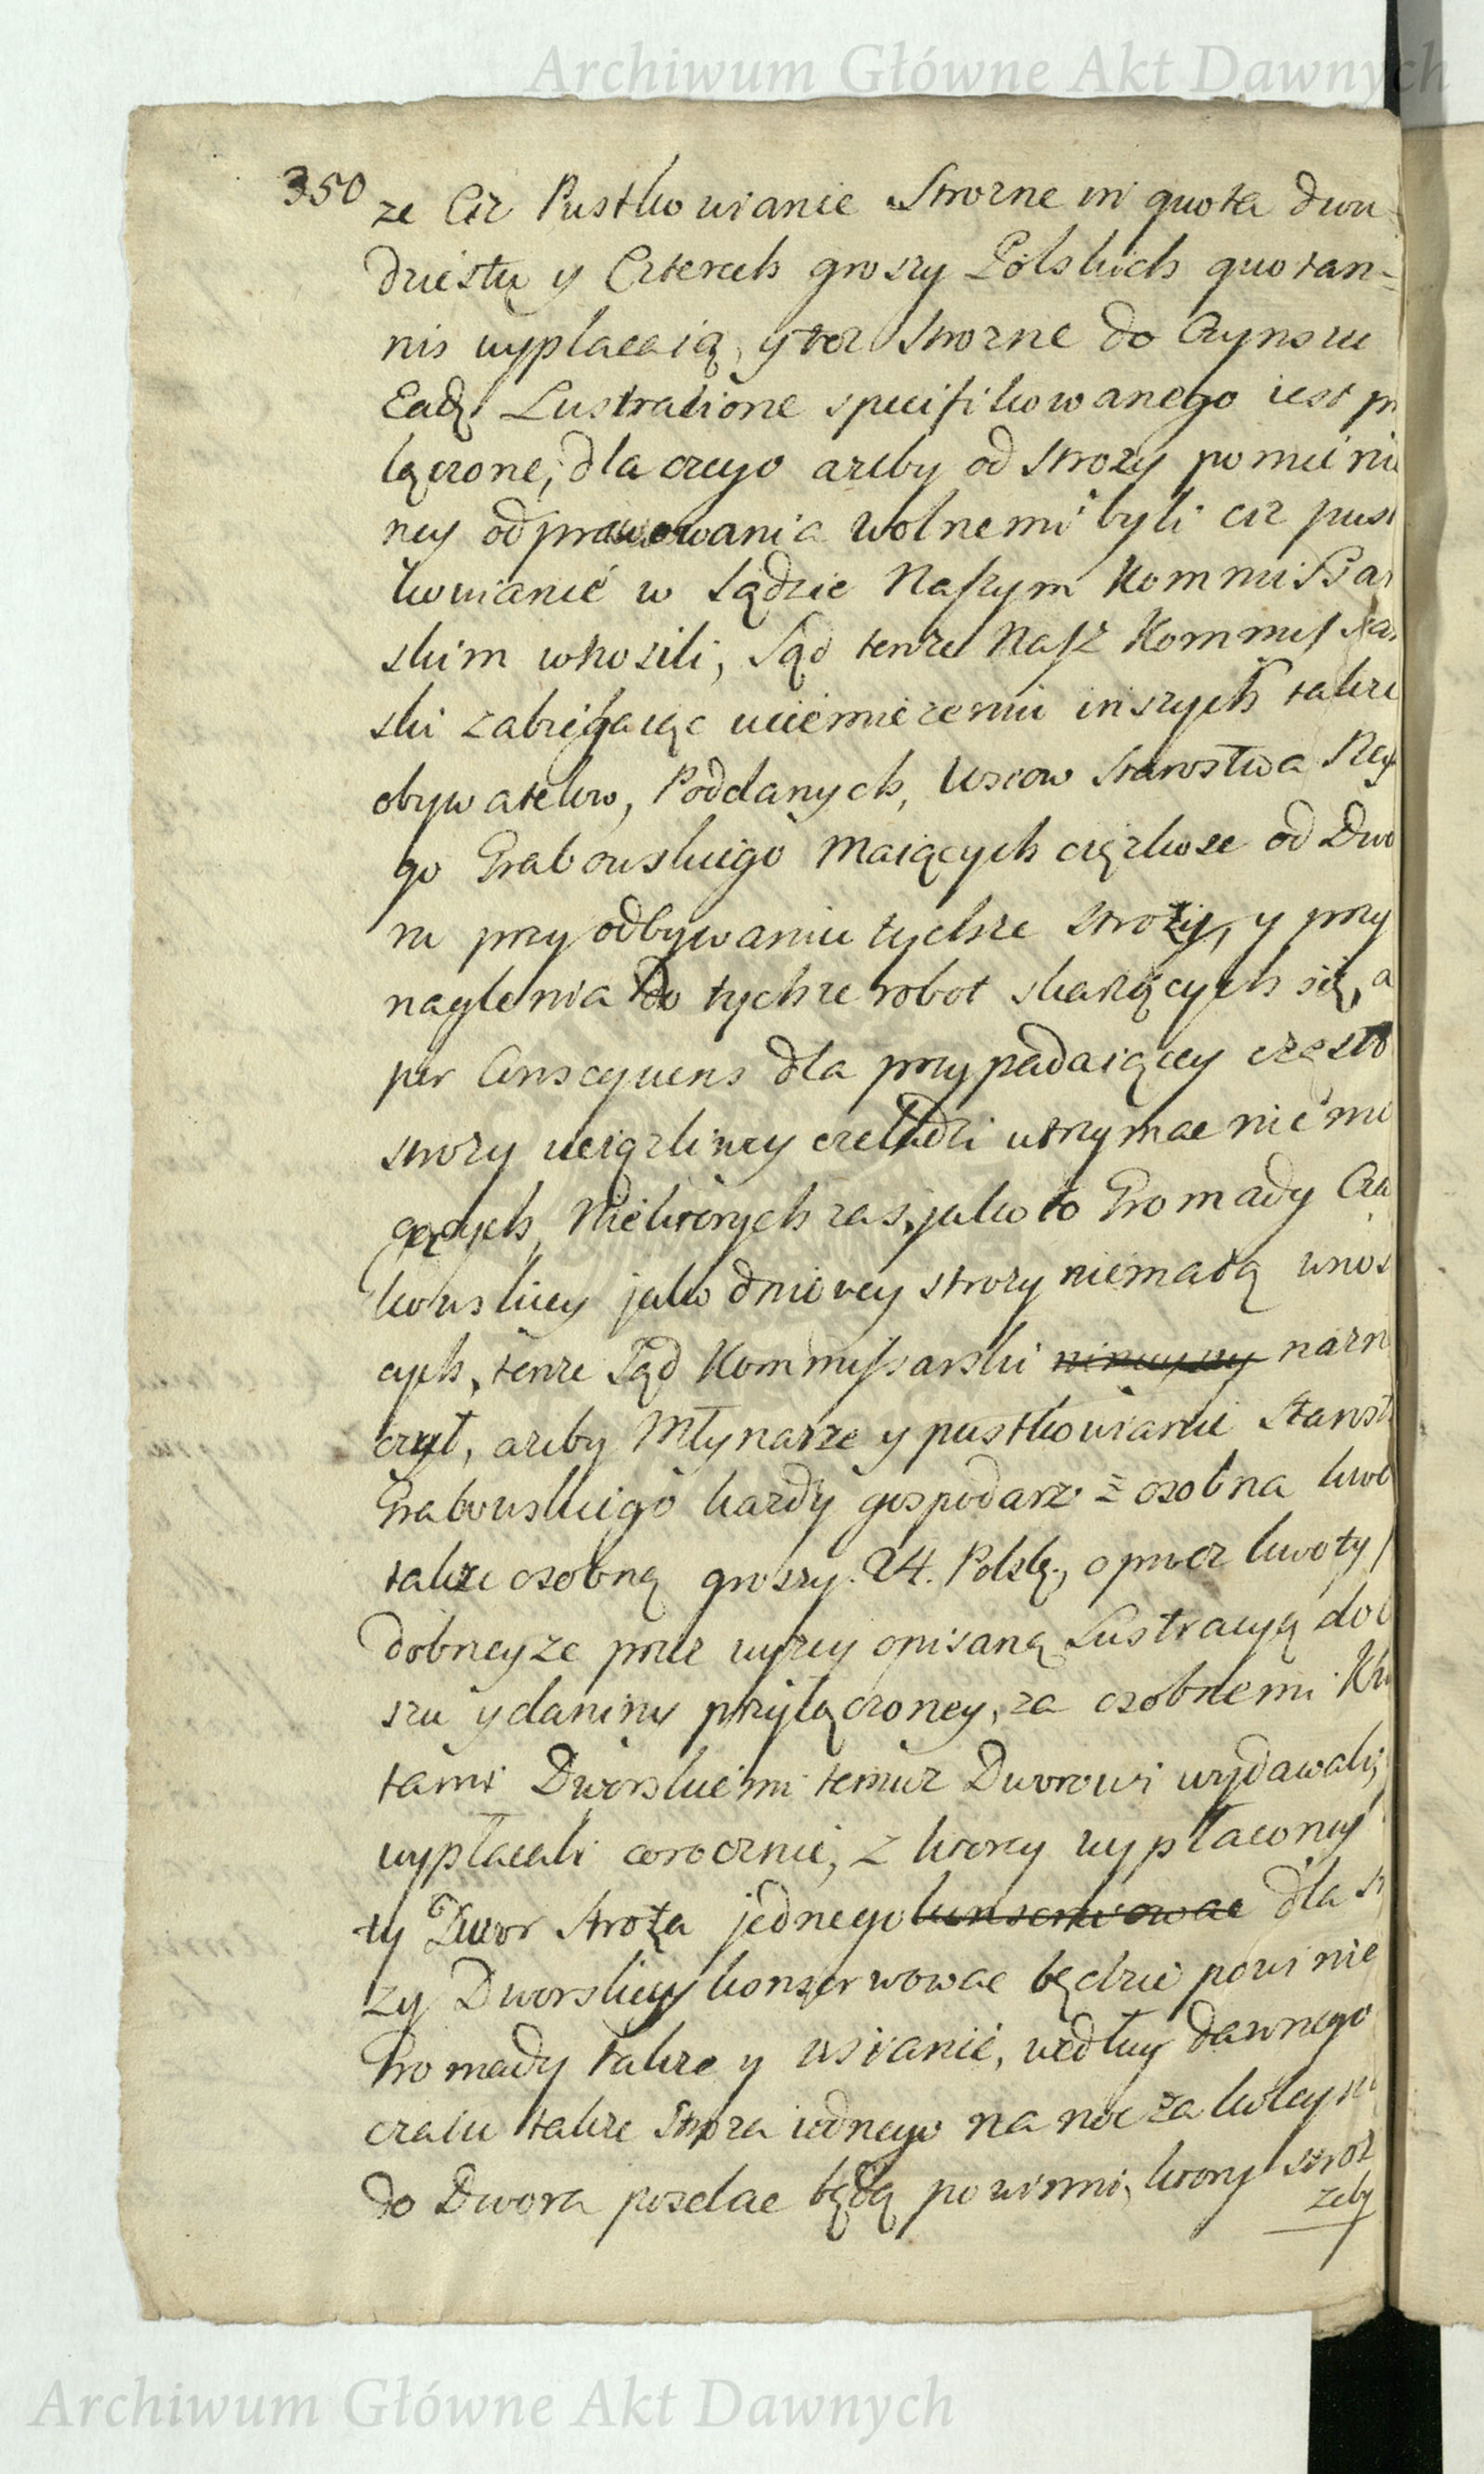 Archiwum Główne Akt Dawnych
350
ze Ciz Pustkowianie Strozne in quota dwu-
dziestu y Czterech groszy Polskich quotan-
nis wypłacaią, y toz strozne do Czynszu
Eadē Lustratione specifikowanego iest p
łączone, dla czego azeby od strozy pomieni
ney odprawowania wolnemi byli ciz pust
kowianie w Sądzie Naszym Kommissar
skim wnosili, Sąd tenze Nasz Kommissar
ski zabiegaiąc uciemiezeniu inszych takze
obywatelow, Poddanych, Wsiow Starostwa
go Grabowskiego Maiących cięzkosc od Dwo
ru przy odbywaniu tychze strozy, y przy
naglenia do tychze robot skarzących się, a
per Consequens dla przypadaiącey częsło
strozy uciązliwey czeladzi utrzymac nie mo
gących, Niektorych zas, jako to Gromady
kowskiey jako dniowey strozy niemaią wnos
cych, tenze Sąd Kommissarski nazn
czył, azeby Młynarze y pustkowianie Starost
Grabowskiego kazdy gospodarz z osobna kwo
takze osobną groszy 24. Polsk., oprocz kwoty p
dobneyze przez wyzey opisaną Lustracyą do
szu y daniny przyłączoney, za osobnemi Kw
tami Dworskiemi temuz Dworowi wydawali,
wypłacali corocznie, z ktorey wypłaconey
ty Dwor stroza jednego konserwowac dla s
zy Dworskiey konserwowac będzie powinie
Gromady takze y wsianie, według dawnego
czaiu takze stroza iednego na noc za koleyn
do Dwora posełac będą powinni, ktory stroz
zeby
Archiwum Główne Akt Dawnych